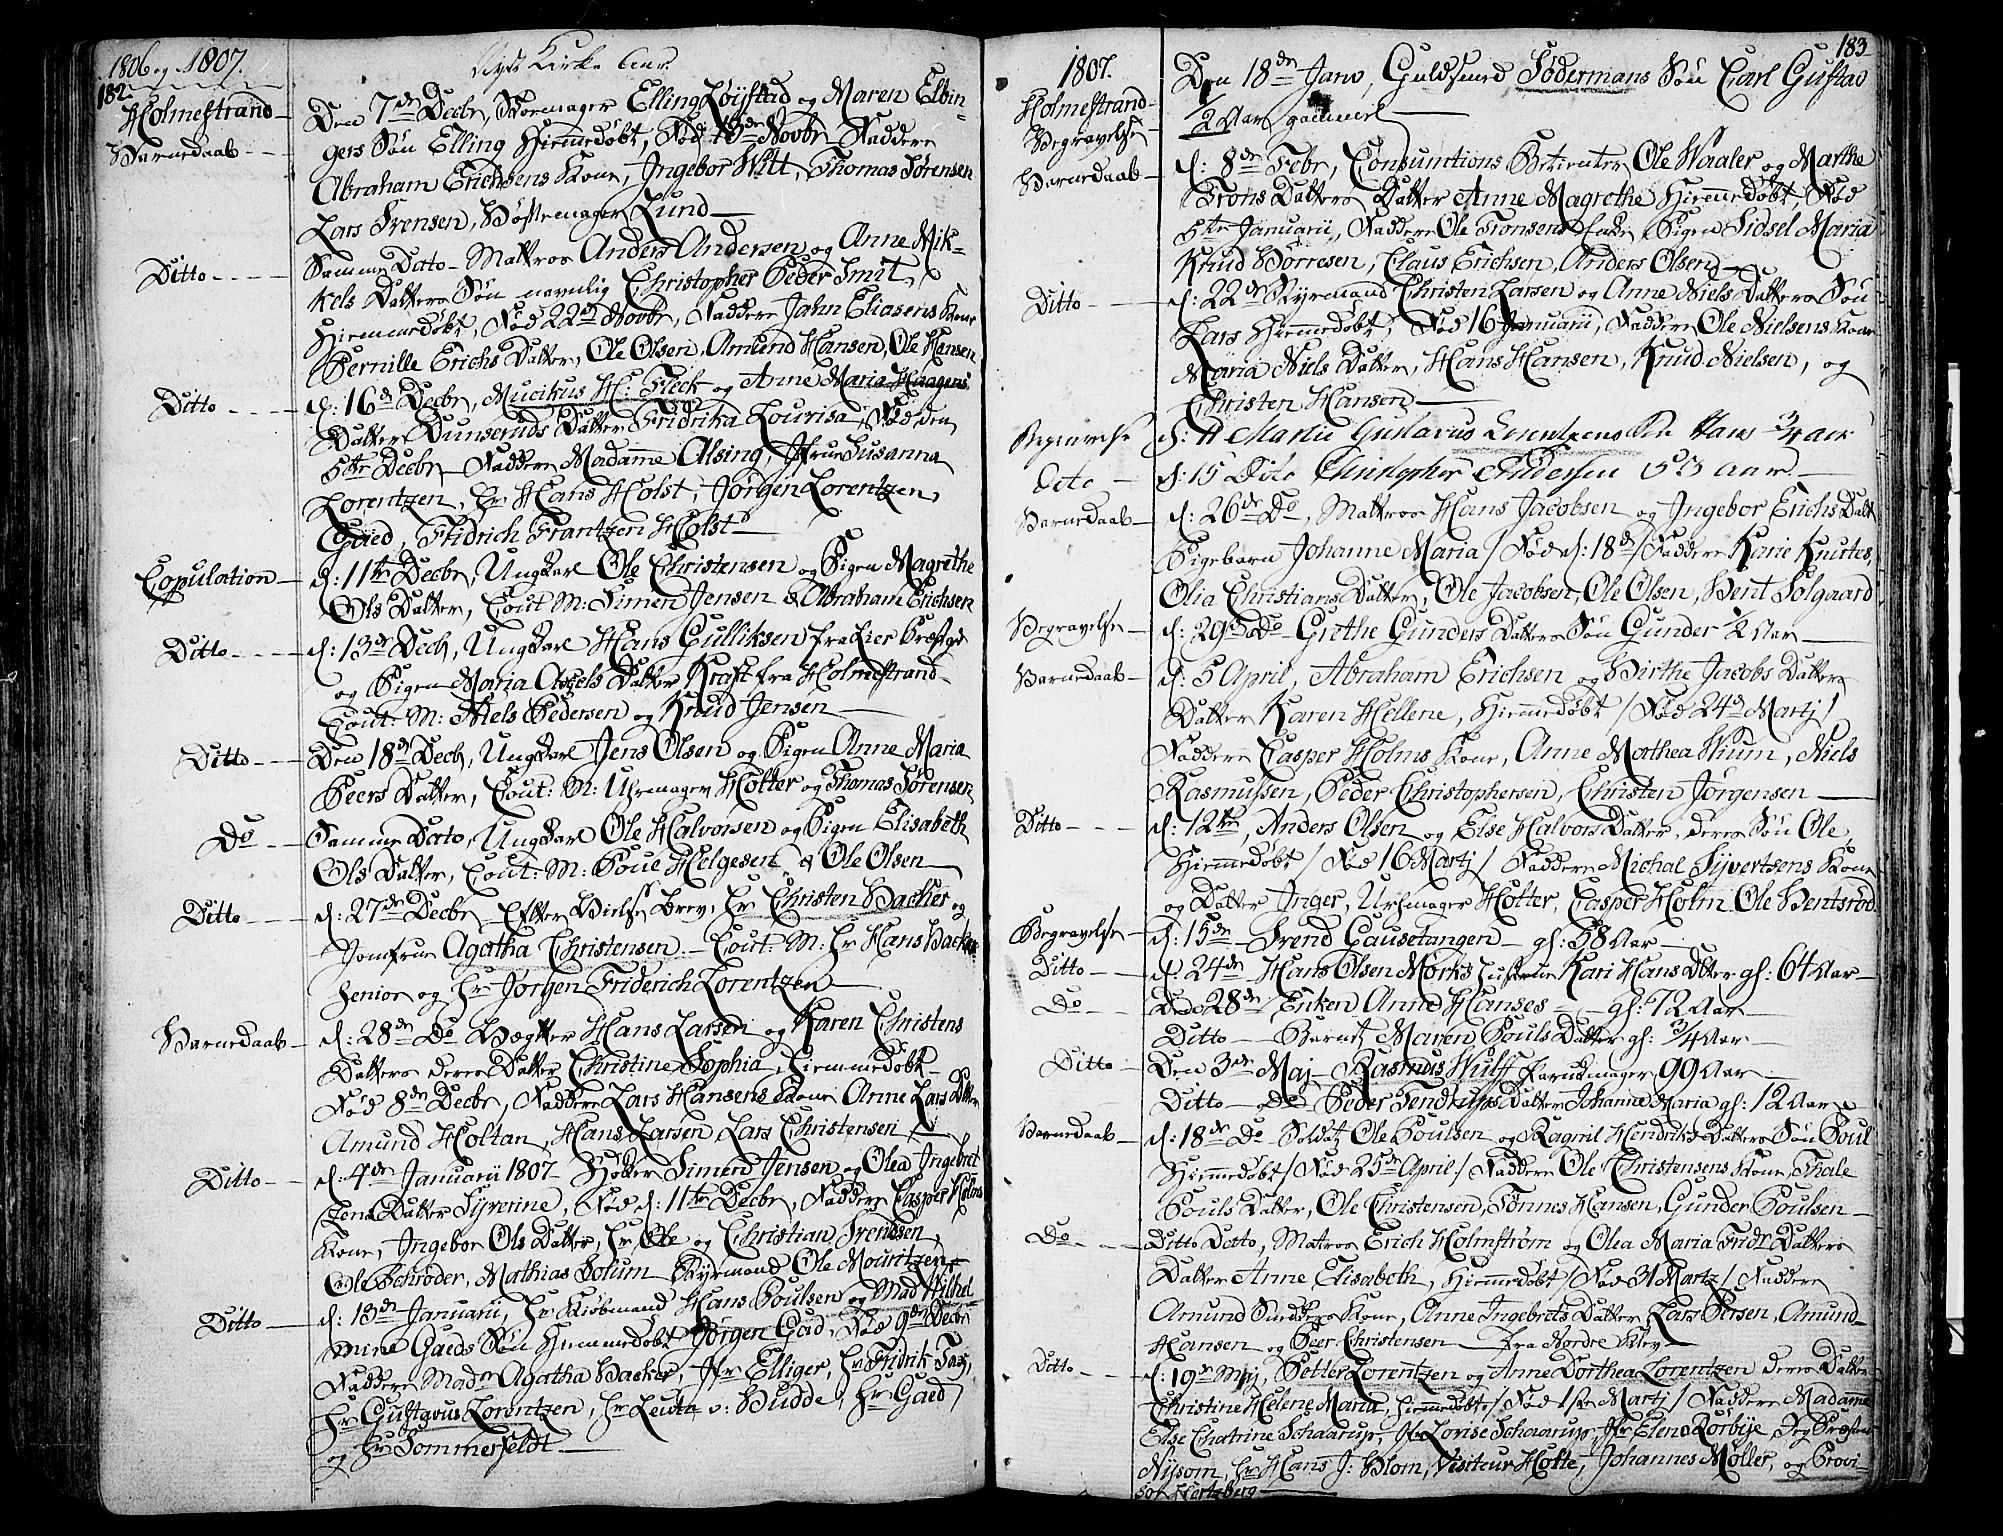 1806 og 1807.
Nyt Kirke Aar
182.
Holmestrand
Barnedaab
Den 7de Decbr, Skomager Elling Løystad og Maren Ellin-
gers Søn Elling Hiemmedøbt, Fød 13de Novbr Faddere
Abraham Erichsens Kone, Ingebor Witt, Thomas Sørensen
Lars Svensen, Bøssemager Lund
Ditto
Samme Dato Mattros Anders Andersen og Anne Mik-
kels Datters Søn navnlig Christopher Peder Smit,
Hiemmedøbt, Fød 22de Novbr, Faddere Jahn Eliasens Kone
Pernille Erichs Datter, Ole Olsen, Amund Hansen, Ole Hansen
Ditto
d: 16de Decbr, Mucikus H: Feck og Anne Maria Haagens
Datter Dunseruds Datter Fridrika Lovrisa, Fød den
5te Decbr Faddere Madamme Alsing, Jfrue Susanna
Lorentzen, Hr Hans Holst, Jørgen Lorentzen,
Gæed, Fridrich Frantzen Holst
Copulation
d: 11te Decbr, Ungkarl Ole Christensen og Pigen Magrethe
Ols Datter, Cout: M: Simen Jensen & Abraham Erichsen
Ditto
d: 13de Decb, Ungkarl Hans Gulliksen fra Lier Præstgd
og Pigen Maria Axels Datter Kraft fra Holmestrand
Cout: M: Niels Pedersen og Knud Jensen
Ditto
Den 18de Decb, Ungkarl Jens Olsen og Pigen Anne Maria
Peers Datter, Cout: M: Uhrmager Hotter og Thomas Sørensen
Do
Samme Dato, Ungkarl Ole Halvorsen og Pigen Elisabeth
Ols Datter, Cout: M: Poue Helgesen & Ole Olsen
Ditto
d: 27de Decbr Efter Vielse Brev, Hr Christen Backer og
Jomfrue Agatha Christensen Cout: M: Hr Hans Backer
Senior og Hr Jørgen Friderich Lorentzen
Barnedaab
d: 28de Do Vægter Hans Larsen og Karen Christens
Datters deres Datter Christine Sophia, Hiemmedøbt
Fød 8de Decbr, Faddere Lars Hansens Kone Anne Lars Datter
Amund Holtan, Hans Larsen, Lars Christensen
Ditto
d: 4de Januarii 1807 Simen Jensen og Olea Ingebret
Datter Syverine, Fød d: 11te Decbr, Faddere Casper Holms
Kone, Ingebor Ols Datter, Hr Ole og Christian Svendsen
Ole Schrøder, Mathias Solum Styrmand Ole Mouritzen
Ditto
d: 18de Januarii, Hr Kiøbmand Hans Poulsen og Mad Wilhel-
mine Gaeds Søn Hiemmedøbt Jørgen Gad, Fød 9de Decbr
Faddere Madm Agatha Backer, Jfr Elliger, Hr Fridrik
Hr Gustavus Lorentzen, Hr Leutn v: Budde, Hr Gaed
og Hr Sommerfeldt
183
1807.
Holmestrand
Begravelse
Den 18de Janv, Guldsmed Södermans Søn Carl Gustav
1/2 Aar gammel
Barnedaab
d: 8de Febr, Consumtions Betienter Ole Waaler og Marthe
Trons Datters Datter Anne Magrethe Hiemmedøbt, Fød
5te Januarii, Faddere Ole Tronsens Pigen Sidsel Maria
Knud Børresen, Claus Erichsen, Anders Olsen
Ditto
d: 22de Styrmand Christen Larsen og Anne Niels Datters Søn
Lars Hiemmedøbt, Fød 16 Januarii, Faddere Ole Nielsens Kone
Maria Niels Datter, Hans Hansen, Knud Nielsen, og
Christen Hansen
Begravelse
d: 11 Martii Gustavus Lorentzens Søn Hans 3/4 aar
Dito
d: 15 Dito Christopher Andersen 53 aar
Barnedaab
d: 26de Do, Mattros Hans Jacobsen og Ingebor Erichs Datt
Pigebarn Johanne Maria / Fød d: 18de / Faddere Karie Knutes,
Olia Christians Datter, Ole Jacobsen, Ole Olsen, Bent Solgaard
Begravelse
d: 29de Do Grethe Gunders Datters Søn Gunder 1/2 Aar
Barnedaab
d: 5 April, Abraham Erichsen og Birthe Jacobs Datters
Datter Karen Hellene, Hiemmedøbt / Fød 24de Martj /
Faddere Casper Holms Kone, Anne Mathea Wium, Niels
Rasmussen, Peder Christophersen, Christen Jørgensen
Ditto
d: 12te, Anders Olsen og Else Halvors Datter, deres Søn Ole
Hiemmedøbt / Fød 16 Martj / Faddere Michal Syvertsens Kone
og Datter Inger, Urhmager Hotter, Casper Holm Ole Bentsrød
Begravelse
d: 15de Svend Causetangen gl: 58 Aar
Ditto
d: 24de Hans Olsen Mørks Hustrue Kari Hans Dtter gl: 64 Aar
Do
Ded 28de Enken Anne Hanses gl: 72 Aar
Ditto Barnet Maren Pouls Datter gl: 3/4 Aar
Ditto
Den 3de Maj Rasmus Wulff Parukmager 99 Aar
Ditto Do Peder Tendrups Datter Johanne Maria gl: 12 Aar
Barnedaab
d: 18de Do Soldat Ole Poulsen og Ragnil Hendriks Datters Søn Poul
Hiemmedøbt / Fød 25de April / Faddere Ole Christensens Kone, Thale
Pouls Datter, Ole Christensen, Tønnes Hansen, Gunder Poulsen
Do
Ditto Dato, Matros Erich Holmstrøm og Olea Maria Fridr Datters
Datter Anne Elisabeth, Hiemmedøbt / Fød 31 Martz / Faddere
Amund Kone, Anne Ingebrets Datter, Lars Persen, Amund
Hansen og Peer Christensen fra Nordre Klev
Ditto
d: 19de Maj, Petter Lorentzen og Anne Dorthea Lorentzen deres Datter
Christine Helene Maria, Hiemmedøbt / Fød 1ste Martj / Faddere Madame
Else Chatrine Schaarup, Jfr Lovise Schaarup, Jfr Elena Rørbye, Præsten
Nysom, Hr Hans J: Blom, Visiteur Hotte, Johannes Møller, og Provi-
sor Hartzberg